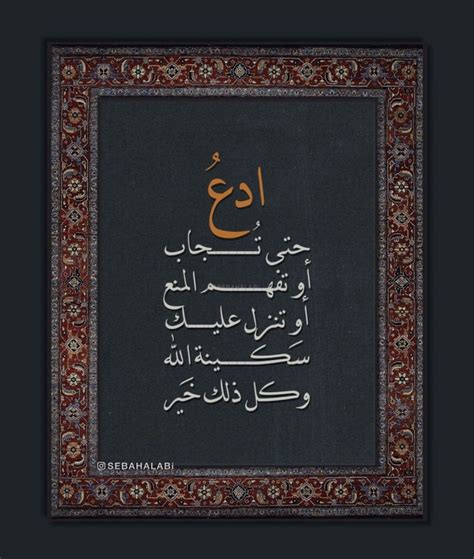 ادعُ
حتى تُجاب
أو تفهم المنع
أو تنزل عليك
سَكَينة الله
وكل ذلك خَير
SEBAHALABi